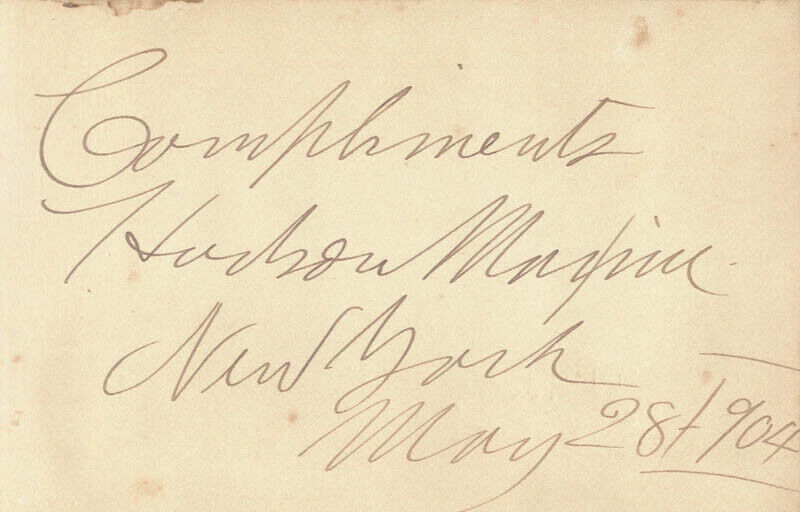 Compliments
Hudson Maxim
New York
May 28 1904